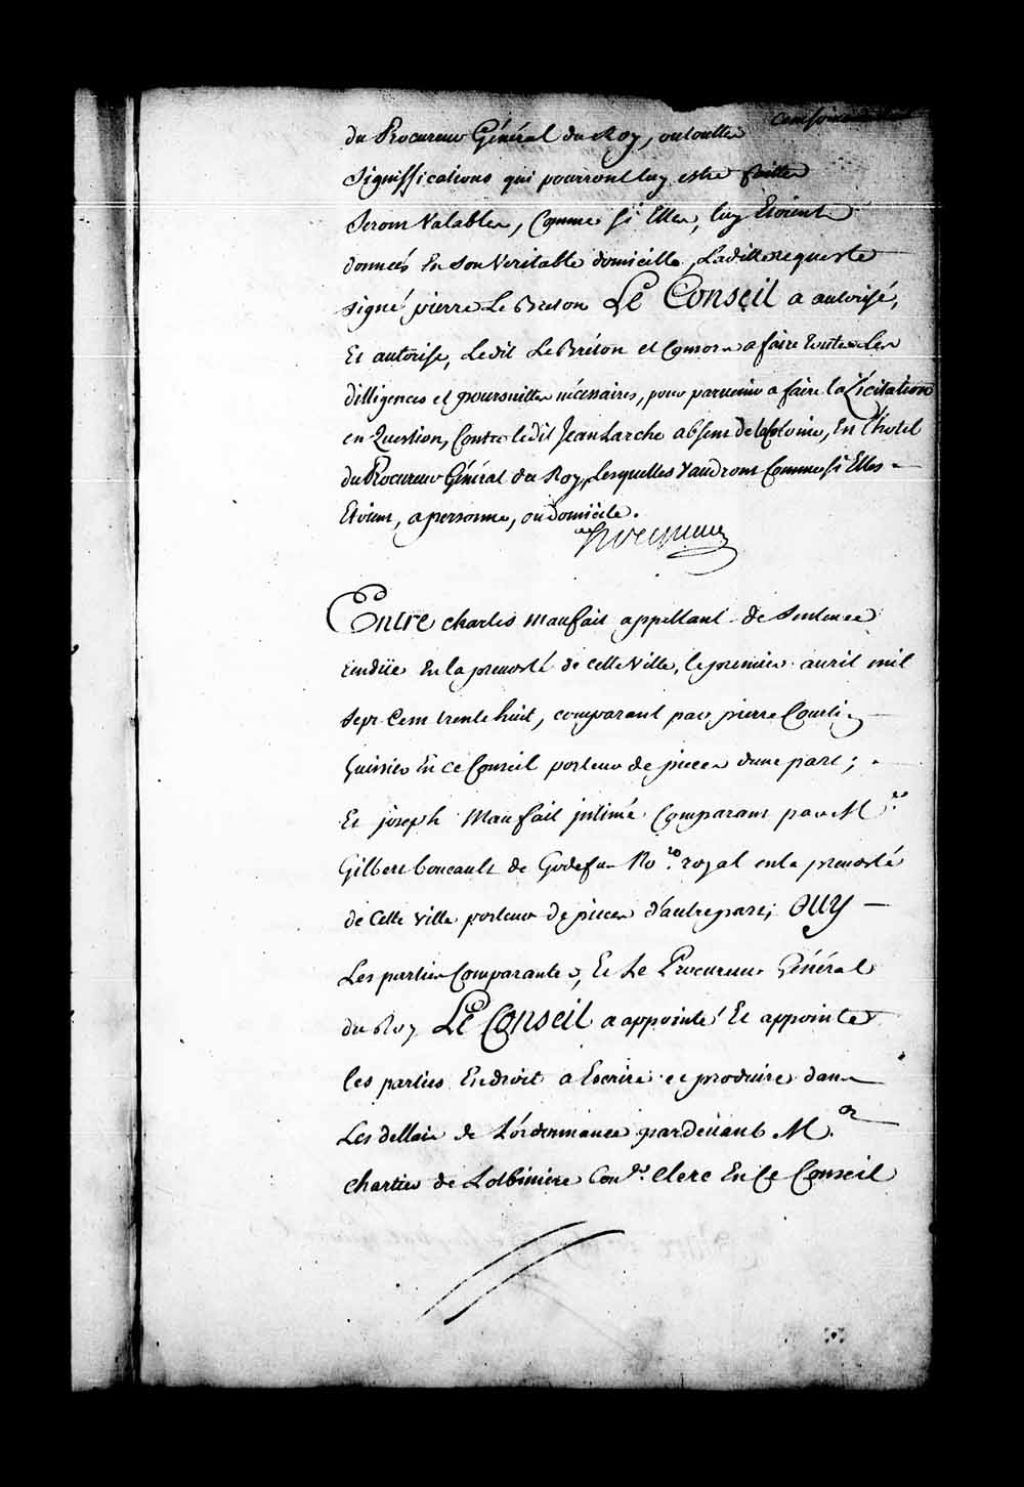 du Procureur Général du Roy, ou toutte
Significations qui pourront luy estre faitte
Seront Valables, Comme si Elles, luy Etoient
données En son Veritable domicille, Ladille requeste
signé pierre Le Breton Le Conseil a autorisé,
Et autorise, Ledit Le Breton et Consors a faire toutes Les
dilligences et poursuittes nécessaires, pour parvenir a faire la Licitation
en Question, Contre ledit Jean Larche absent de la Colonie, En l'hotel
du Procureur Général du Roy, Lesquelles Vaudront Comme si Elles
Etoient, a personne, ou domicile.
Hocquart
Entre charles maufait appellant de Sentence
rendüe En la prevosté de cette Ville, le premier avril mil
Sept Cent trente huit, comparant par pierre Courtin
huissier En ce Conseil porteur de pieces dune part;
Et joseph Maufait intimé Comparant par Me.
Gilbert boucault de Godefus No.re royal en la prevosté
de Cette Ville porteur de pieces d'autre part; OUY
Les parties Comparantes, Et Le Procureur Général
du Roy Le Conseil a appointé Et appointe
les parties En droit a Escrire et produire dans
Les dellais de L'ordonnance pardevant M.r
chartier de Lotbiniere Con.er Clerc En Ce Conseil